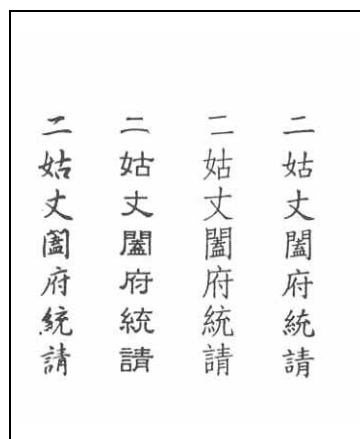 二姑丈闔府統請
二姑丈闔府統請
二姑丈闔府統請
二姑丈闔府統請